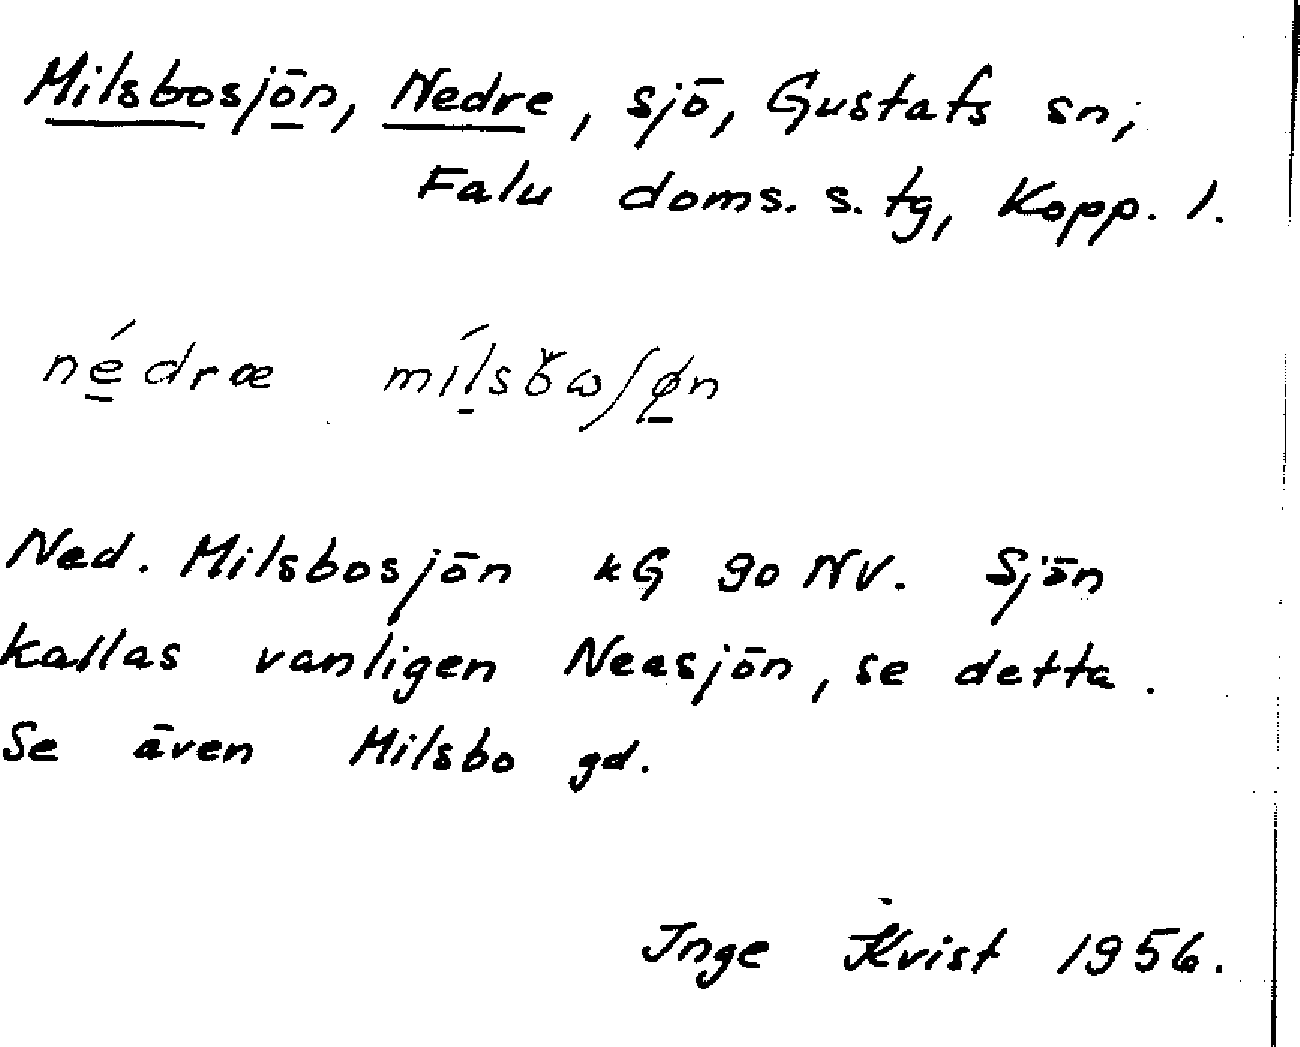 Milsbosjön, Nedre, sjö, Gustafs sn,
Falu doms. s. tg, Kopp. l.
nédræ
Ned. Milsbosjön kG 90 NV. Sjön
kallas vanligen Neasjön, se detta.
Se även Milsbo gd.
Inge Kvist 1956.